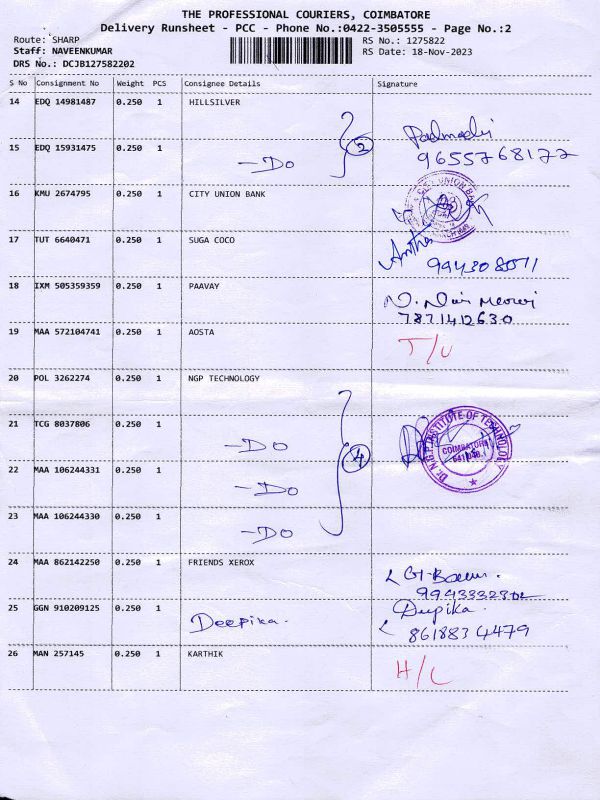 THE PROFESSIONAL COURIERS, COIMBATORE
Delivery Runsheet - PCC - Phone No.:0422-3505555 - Page No.:2
Route: SHARP RS No.: 1275822
Staff: NAVEENKUMAR RS Date: 18-Nov-2023
DRS No.: DCJB127582202
S No Consignment No Weight PCS Consignee Details Signature
14 EDQ 14981487 0.250 1 HILLSILVER
15 EDQ 15931475 0.250 1 - Do 2 9655768177
16 KMU 2674795 0.250 1 CITY UNION BANK
17 TUT 6640471 0.250 1 SUGA COCO
18 IXM 505359359 0.250 1 PAAVAY
7871412630
19 MAA 572104741 0.250 1 AOSTA T/U
20 POL 3262274 0.250 1 NGP TECHNOLOGY
21 TCG 8037806 0.250 1 - Do
22 MAA 106244331 0.250 1 - Do 4
23 MAA 106244330 0.250 1 - Do
24 MAA 862142250 0.250 1 FRIENDS XEROX
25 GGN 910209125 0.250 1 Deepika. Deepika.
8618834479
26 MAN 257145 0.250 1 KARTHIK H/L